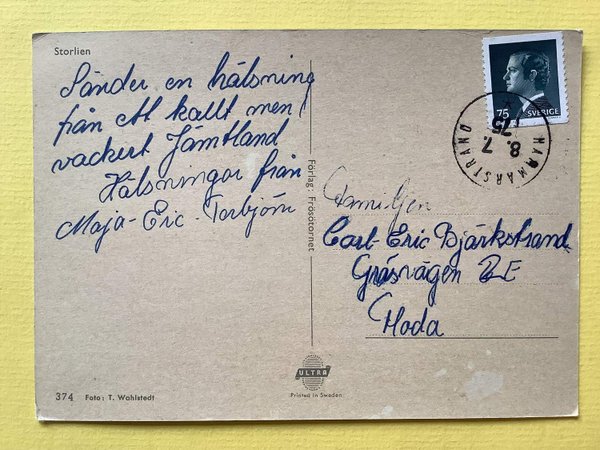 Storlien
Sänder en hälsning
från ett kallt men
vackert Jämtland
Hälsningar från
Maja - Eric - Torbjörn
75
SVERIGE
HAMMARSTRAND
8.7
75
Förlag: Frösötornet
Familjen
Carl-Eric Bjärkstrand
Gräsvägen 2E
Hoda
ULTRA
Printed in Sweden
374 Foto: T. Wahlstedt